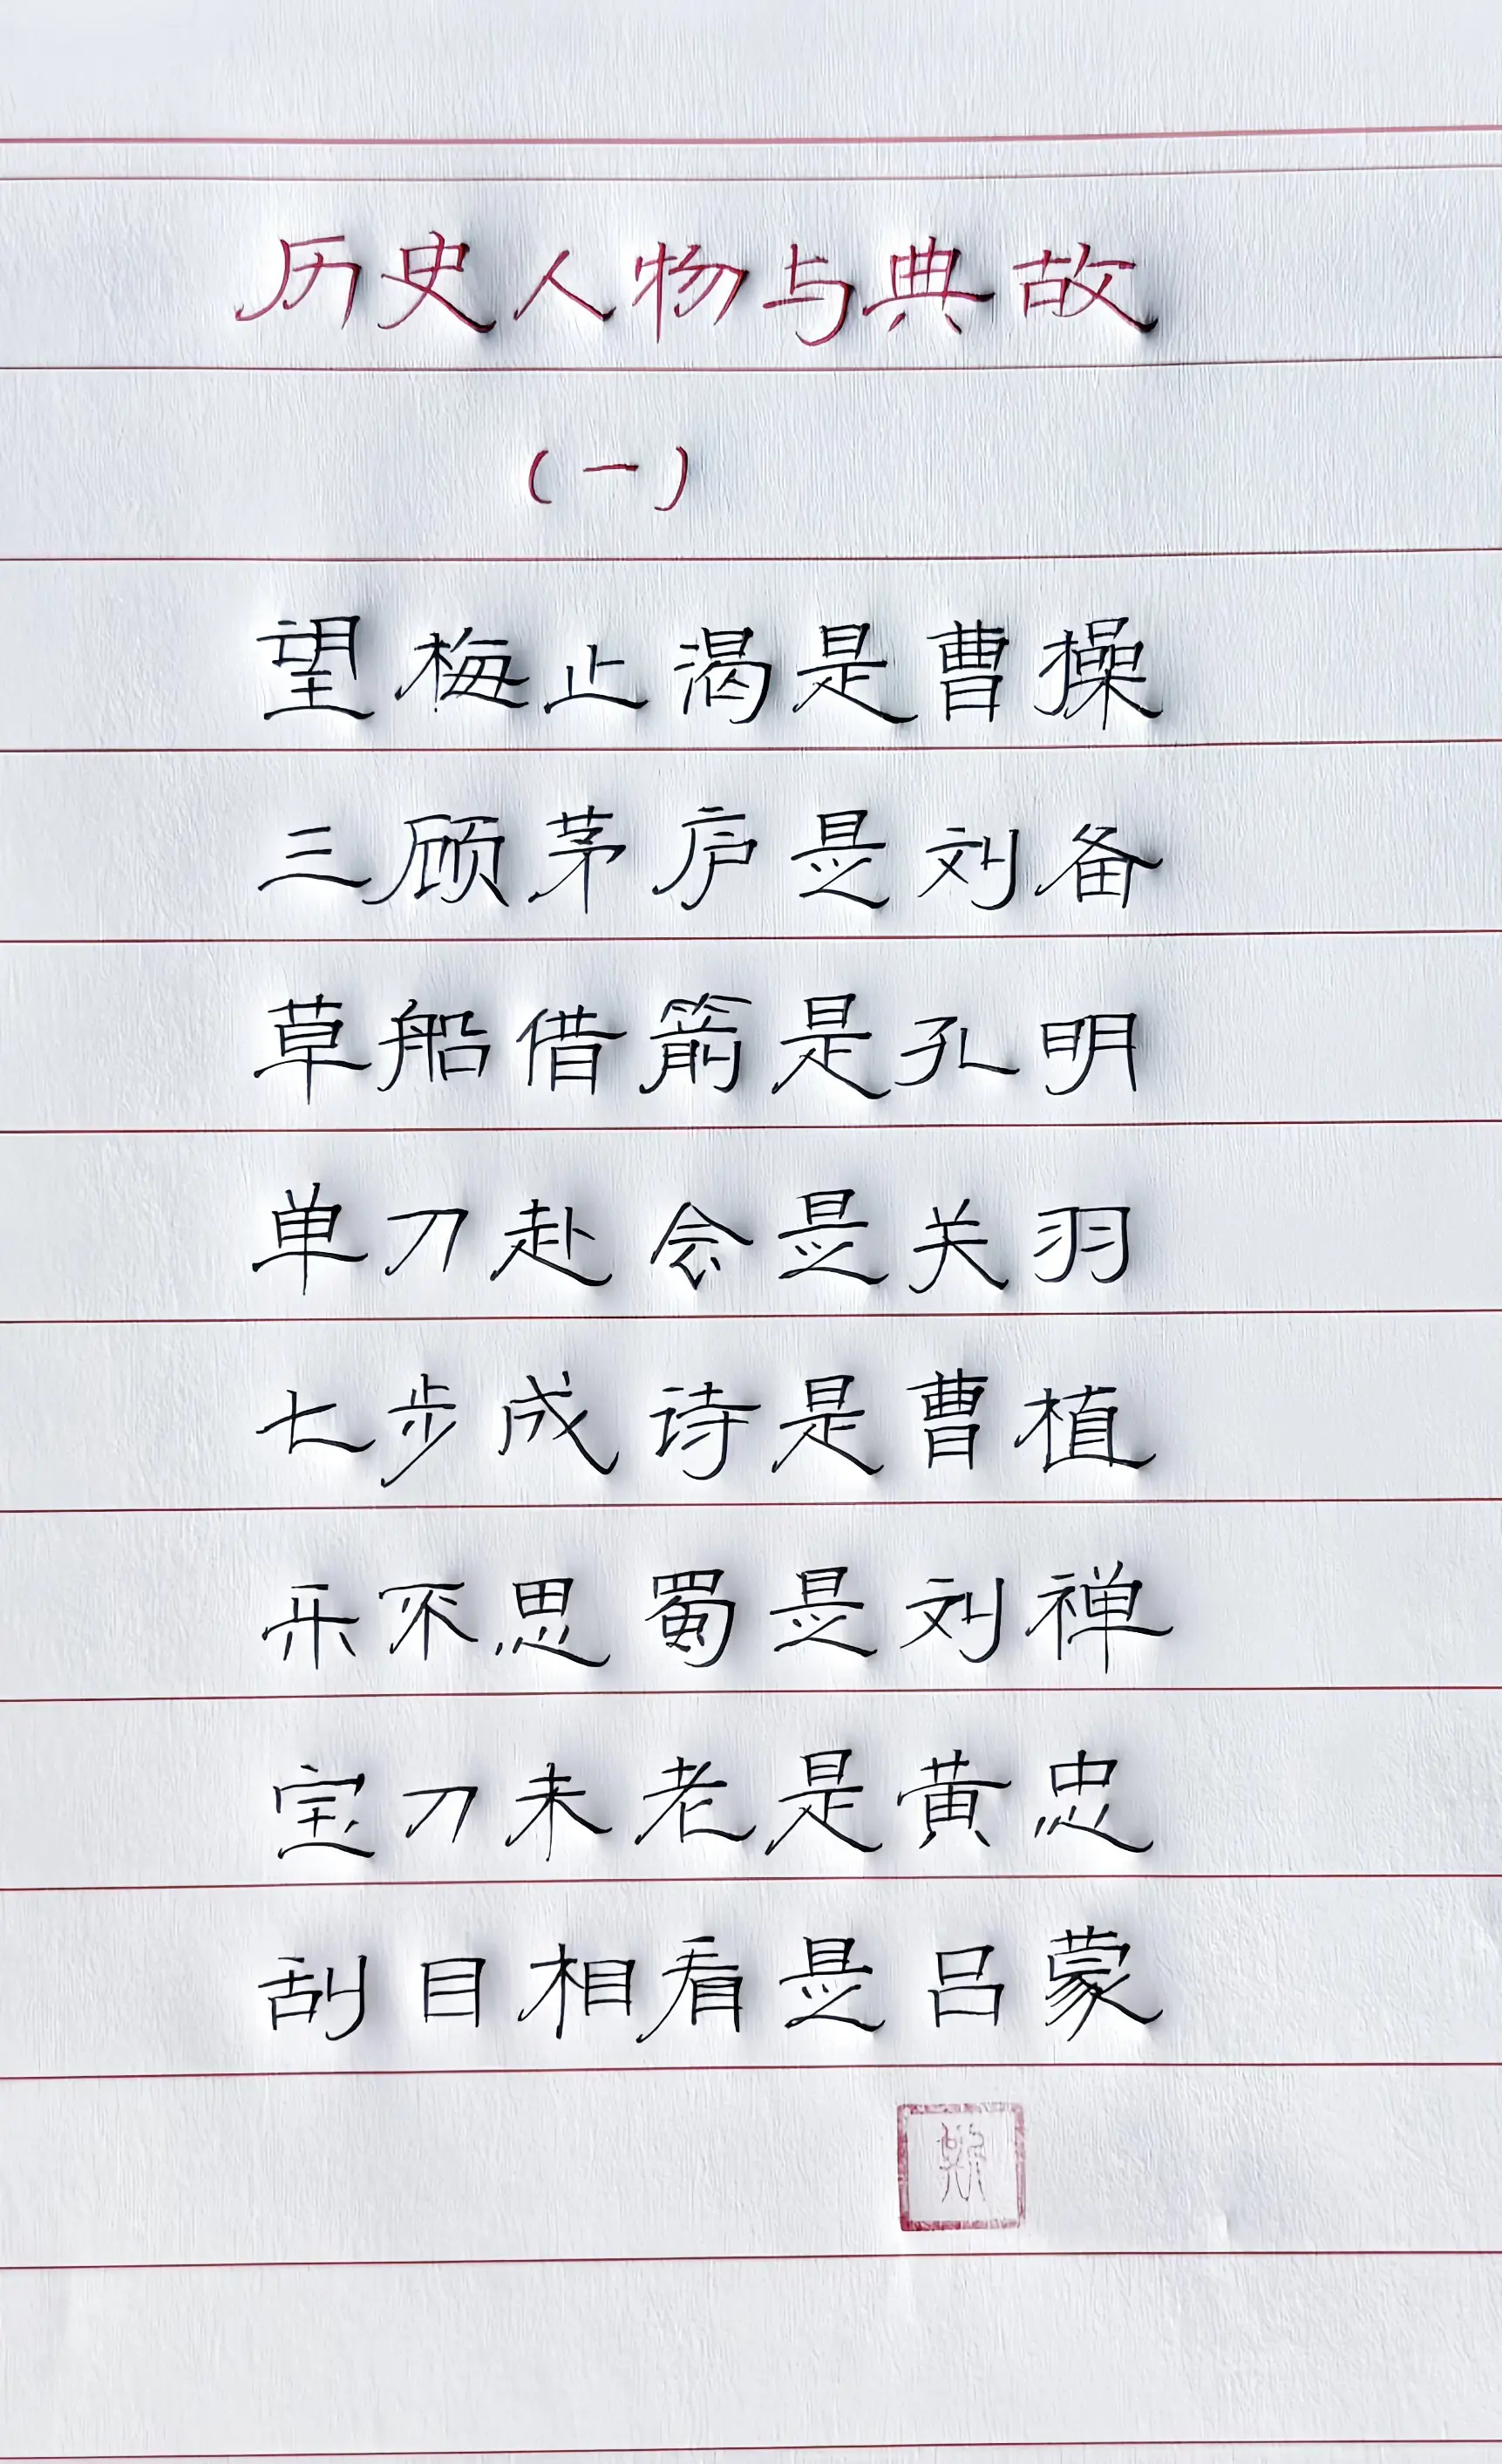 历史人物与典故
(一)
望梅止渴是曹操
三顾茅庐是刘备
草船借箭是孔明
单刀赴会是关羽
七步成诗是曹植
乐不思蜀是刘禅
宝刀未老是黄忠
刮目相看是吕蒙